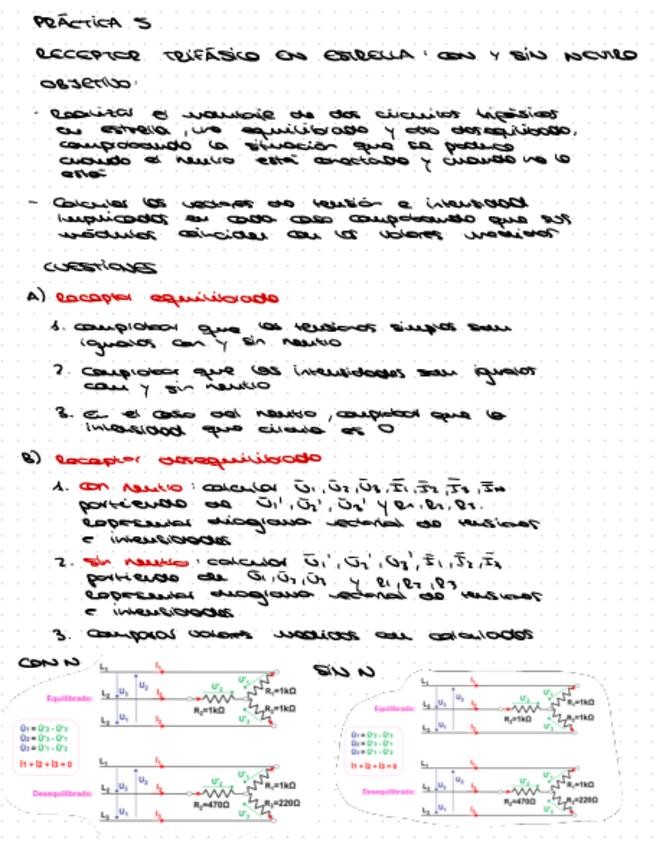 PRÁCTICA 5
RECEPTOR TRIFÁSICO EN ESTRELLA: CON Y SIN NEUTRO
OBJETIVO:
- Realizar el montaje de dos circuitos trifásicos
en estrella, uno equilibrado y otro desequilibrado,
comprobando la situación que se produce
cuando el neutro está conectado y cuando no lo
está
- Calcular los vectores de tensión e intensidad
implicados en cada caso comprobando que sus
módulos coinciden con los valores medidos
CUESTIONES
A) Receptor equilibrado
1. comprobar que las tensiones simples sean
iguales con y sin neutro
2. Comprobar que las intensidades sean iguales
con y sin neutro
3. En el caso del neutro, comprobar que la
intensidad que circula es 0
B) Receptor desequilibrado
1. con neutro: calcular Ū1, Ū2, Ū3, Ī1, Ī2, Ī3, ĪN
partiendo de Ū1', Ū2', Ū3' y R1, R2, R3.
Representar diagrama vectorial de tensiones
e intensidades
2. sin neutro: calcular Ū1', Ū2', Ū3', Ī1, Ī2, Ī3
partiendo de Ū1, Ū2, Ū3 y R1, R2, R3
Representar diagrama vectorial de tensiones
e intensidades
3. Comparar valores medidos con calculados
CON N
SIN N
L1 I1
Equilibrado: U3 U2 L2 U'2 R2=1kΩ R1=1kΩ R3=1kΩ
U1 L3
Ū1 = Ū'2 - Ū'3
Ū2 = Ū'3 - Ū'1
Ū3 = Ū'1 - Ū'2
Ī1 + Ī2 + Ī3 = 0
L1
Desequilibrado: U3 U2 L2 U'2 R2=470Ω R1=1kΩ R3=220Ω
U1 L3
L1
Equilibrado: U3 U2 L2 U'2 R2=1kΩ R1=1kΩ R3=1kΩ
U1 L3
Ū1 = Ū'2 - Ū'3
Ū2 = Ū'3 - Ū'1
Ū3 = Ū'1 - Ū'2
Ī1 + Ī2 + Ī3 = 0
L1
Desequilibrado: U3 U2 L2 U'2 R2=470Ω R1=1kΩ R3=220Ω
U1 L3